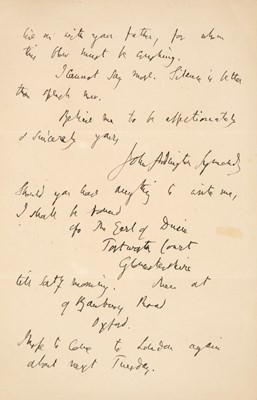 live on with your father, for whom
this blow must be crushing.
I cannot say more. Silence is better
than speech now.
Believe me to be affectionately
& sincerely yours,
John Addington Symonds
Should you have anything to write me,
I shall be found
c/o The Earl of Ducie
Tortworth Court
Gloucestershire
till Saty morning. Then at
9 Banbury Road
Oxford.
I hope to come to London again
about next Tuesday.